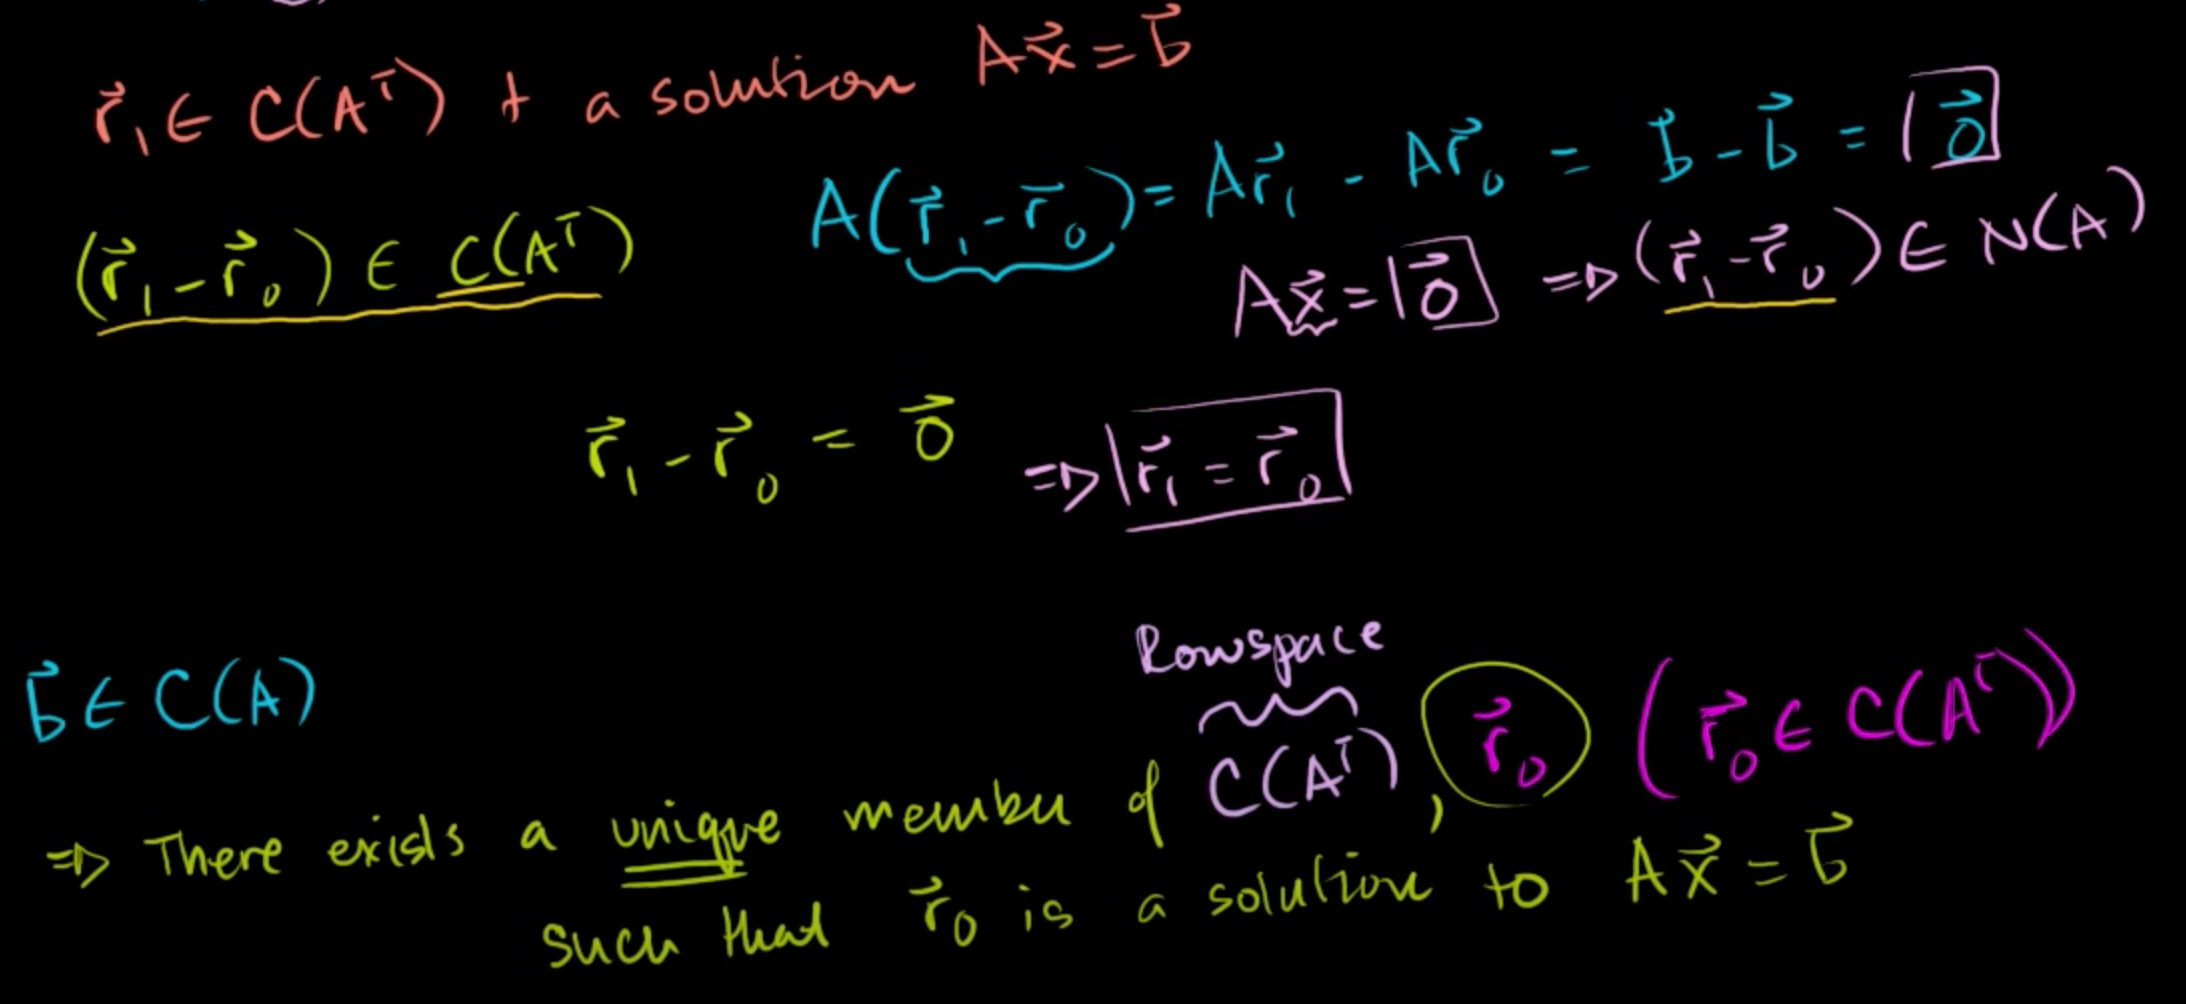 r⃗₁ ∈ C(Aᵀ) + a solution Ax⃗ = b⃗
A(r⃗₁ - r⃗₀) = Ar⃗₁ - Ar⃗₀ = b⃗ - b⃗ = 0⃗
(r⃗₁ - r⃗₀) ∈ C(Aᵀ)
Ax⃗ = 0⃗ ⇒ (r⃗₁ - r⃗₀) ∈ N(A)
r⃗₁ - r⃗₀ = 0⃗ ⇒ r⃗₁ = r⃗₀
Rowspace
b⃗ ∈ C(A)
⇒ There exists a unique member of C(Aᵀ), r⃗₀ (r⃗₀ ∈ C(Aᵀ))
such that r⃗₀ is a solution to Ax⃗ = b⃗